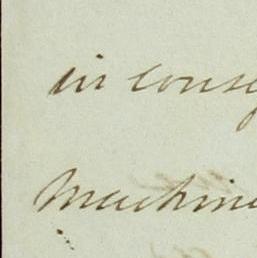 in conseq
Machine